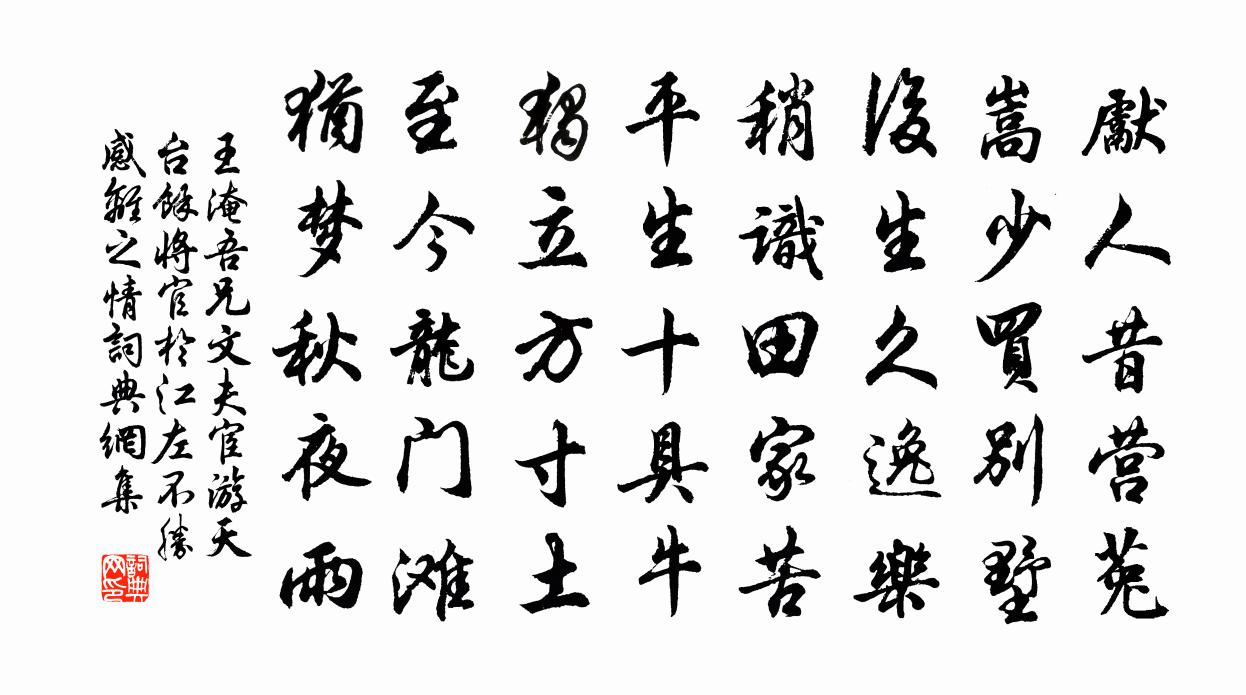 獻人昔营菟
嵩少買别墅
後生久逸樂
稍識田家苦
平生十具牛
獨立方寸土
至今龍门滩
猶梦秋夜雨
王淹吾兄文夫宦游天
台餘将官於江左不勝
感離之情詞典網集
詞典网印